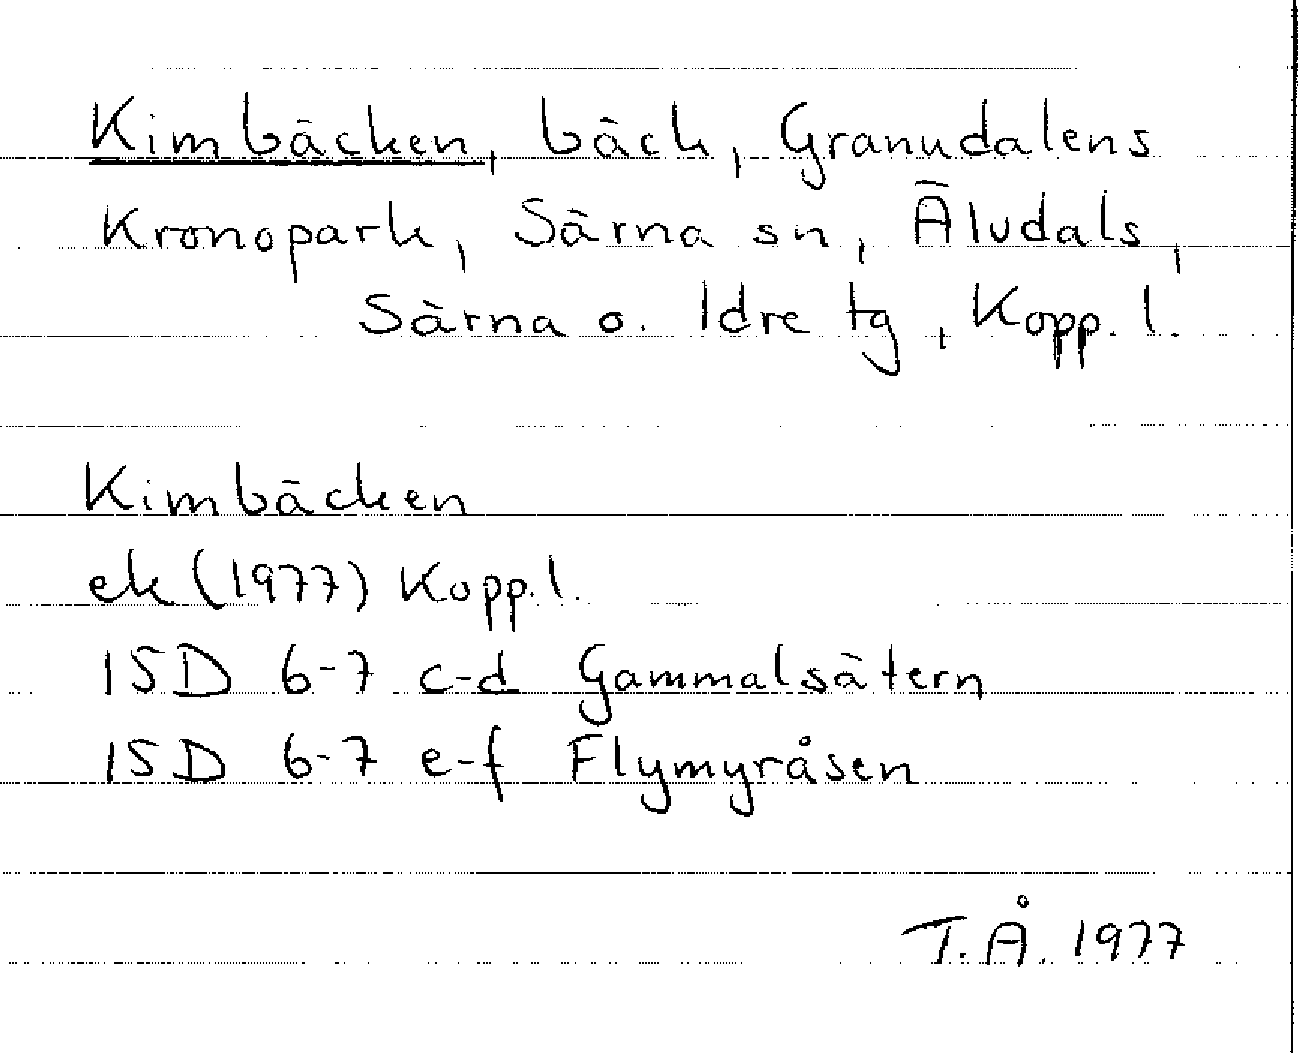 Kimbäcken, bäck, Granudalens
Kronopark, Särna sn, Älvdals,
Särna o. Idre tg, Kopp. l.
Kimbäcken
ek (1977) Kopp. l.
15D 6-7 c-d Gammalsätern
15D 6-7 e-f Flymyråsen
T.Å. 1977